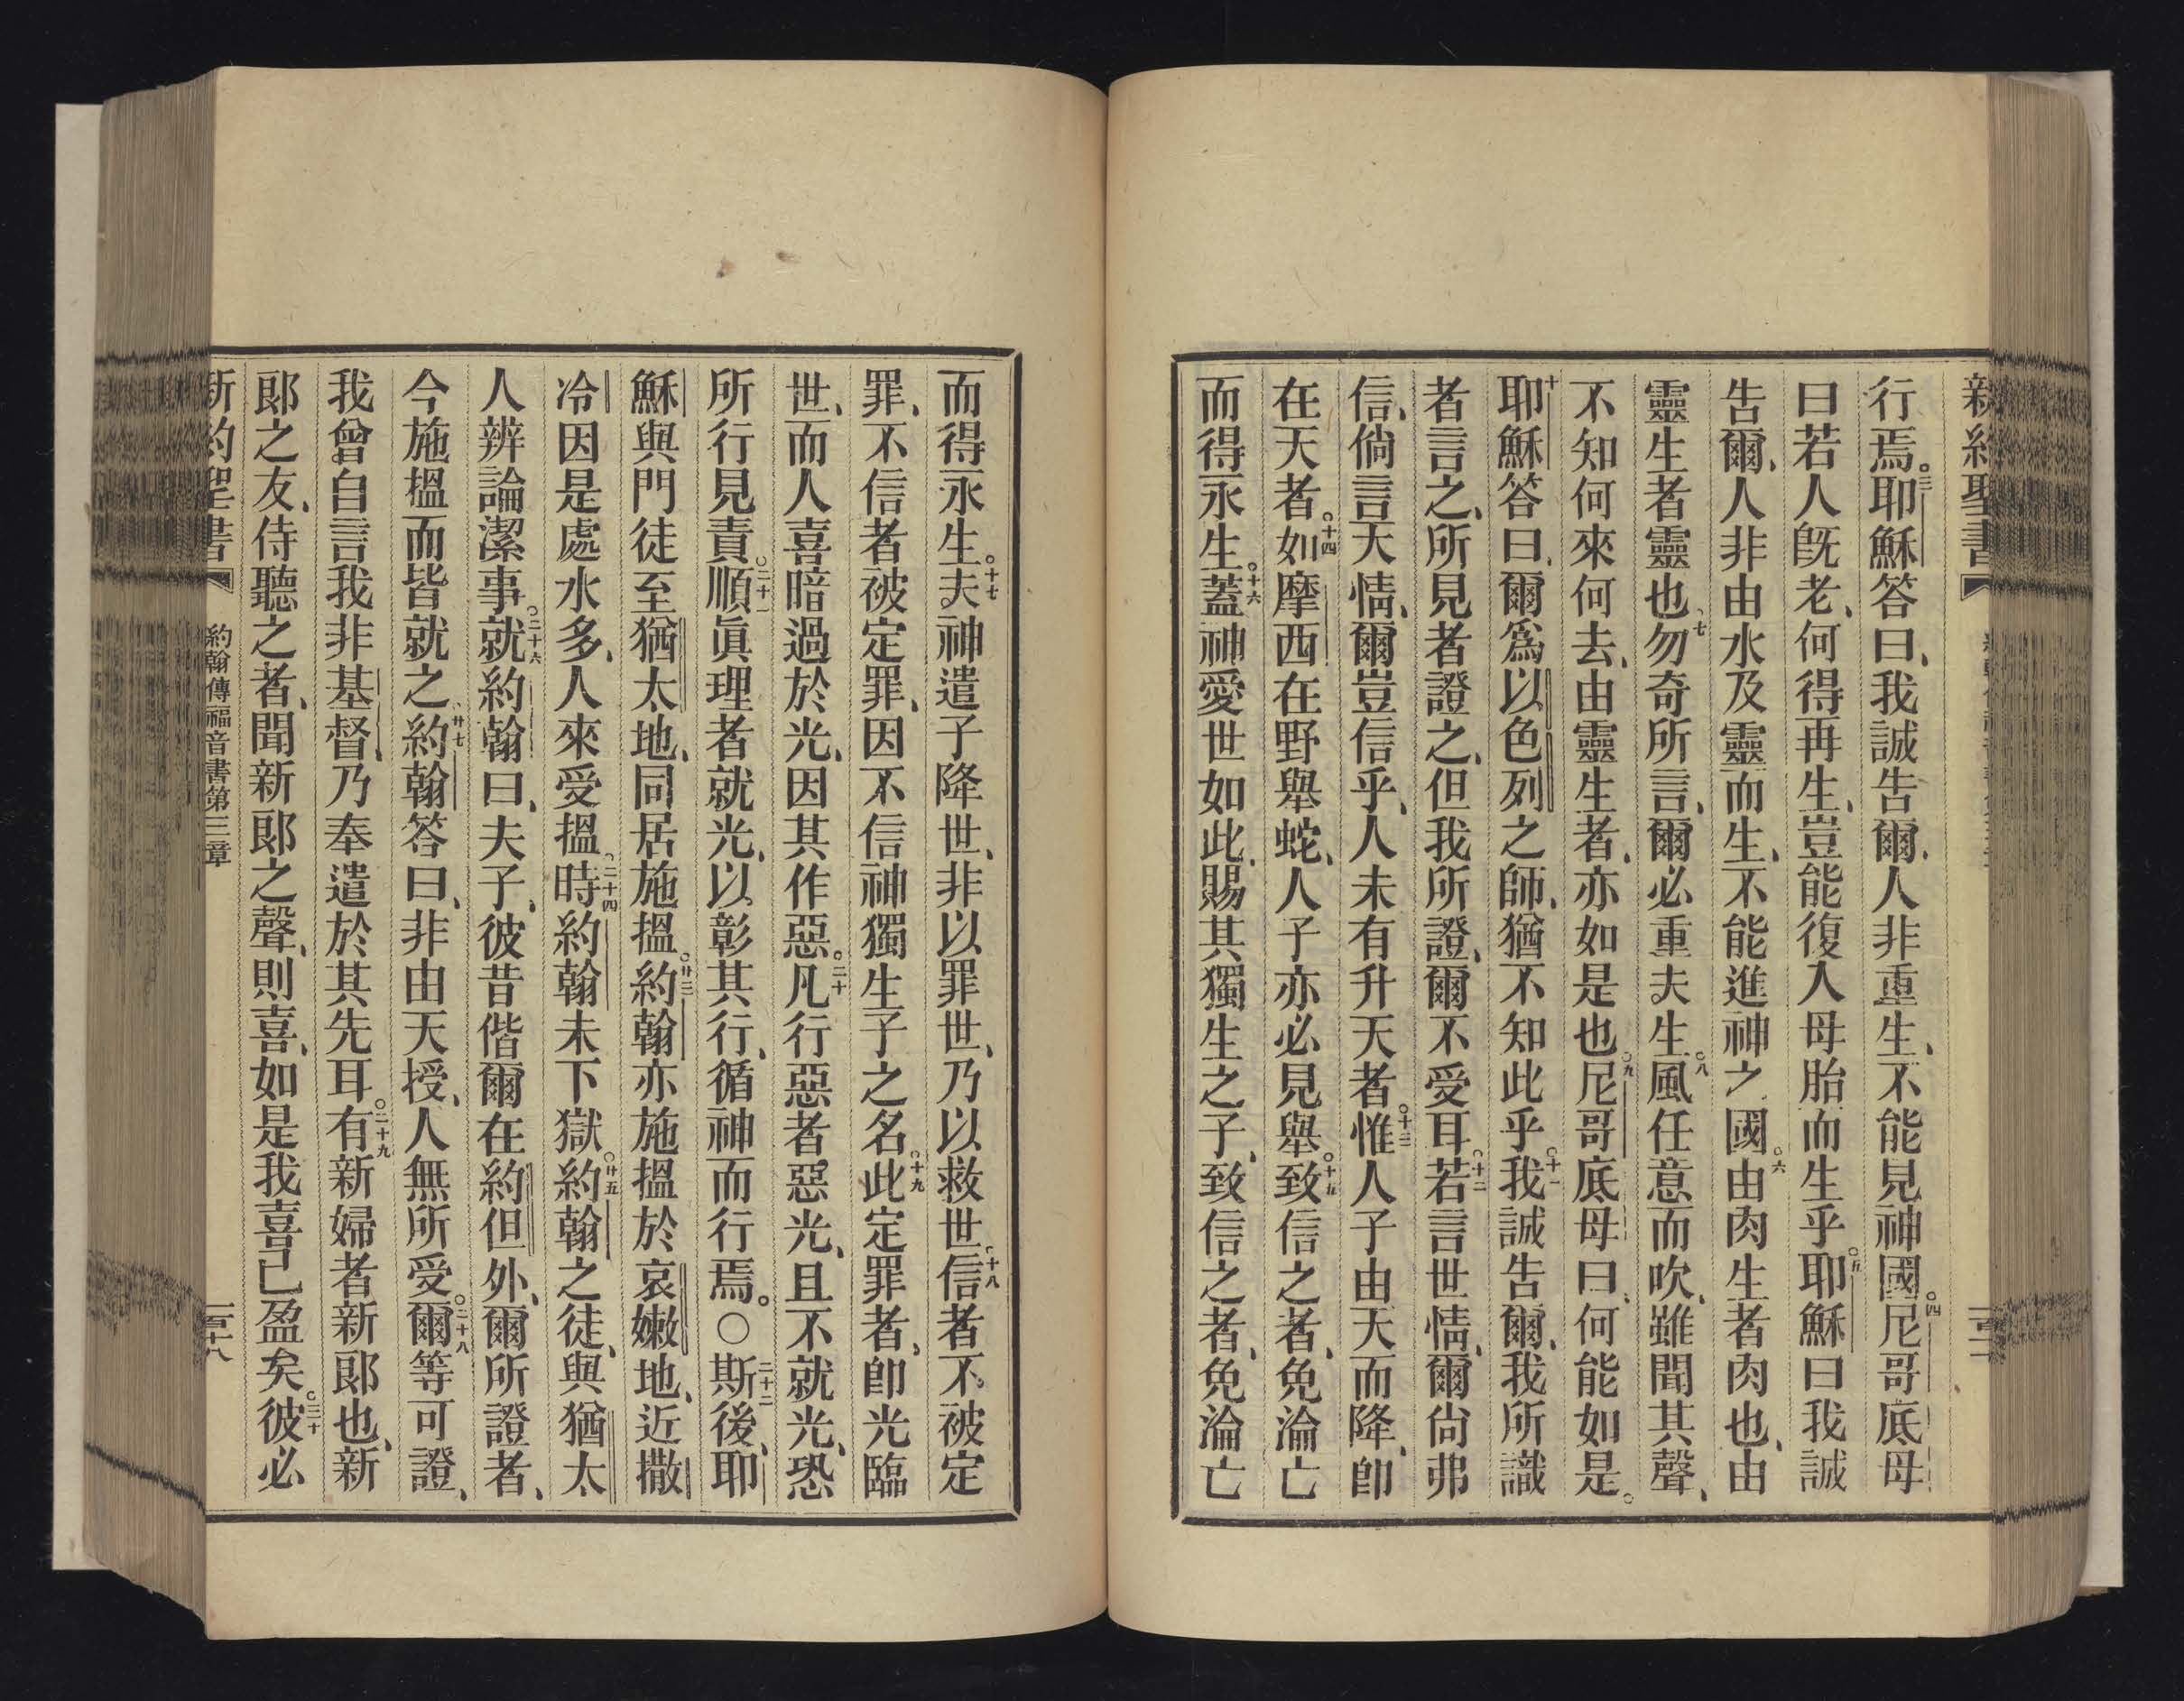 新約聖書
行焉。三耶穌答曰、我誠告爾、人非重生、不能見神國。四尼哥底母
曰若人旣老、何得再生、豈能復入母胎而生乎。五耶穌曰我誠
告爾、人非由水及靈而生、不能進神之國。六由肉生者肉也、由
靈生者靈也、七勿奇所言、爾必重夫生。八風任意而吹、雖聞其聲、
不知何來何去、由靈生者、亦如是也。九尼哥底母曰、何能如是。
十耶穌答曰、爾爲以色列之師、猶不知此乎。十一我誠告爾、我所識
者言之、所見者證之、但我所證、爾不受耳。十二若言世情、爾尙弗
信、倘言天情、爾豈信乎、人未有升天者。十三惟人子由天而降、卽
在天者。十四如摩西在野舉蛇、人子亦必見舉。十五致信之者、免淪亡
而得永生。十六蓋神愛世如此、賜其獨生之子、致信之者、免淪亡
而得永生。十七夫神遣子降世、非以罪世、乃以救世。十八信者不被定
罪、不信者被定罪、因不信神獨生子之名。十九此定罪者、卽光臨
世、而人喜暗過於光、因其作惡。二十凡行惡者惡光、且不就光、恐
所行見責。二十一順眞理者就光、以彰其行、循神而行焉。○二十二斯後、耶
穌與門徒至猶太地、同居施搵。廿三約翰亦施搵於哀嫩地、近撒
冷因是處水多、人來受搵、二十四時約翰未下獄。廿五約翰之徒、與猶太
人辨論潔事。二十六就約翰曰、夫子、彼昔偕爾在約但外、爾所證者、
今施搵而皆就之、廿七約翰答曰、非由天授、人無所受。二十八爾等可證、
我曾自言我非基督、乃奉遣於其先耳。二十九有新婦者新郞也、新
郞之友、侍聽之者、聞新郞之聲、則喜、如是我喜已盈矣。三十彼必
新約聖書
約翰傳福音書第三章
一百十八